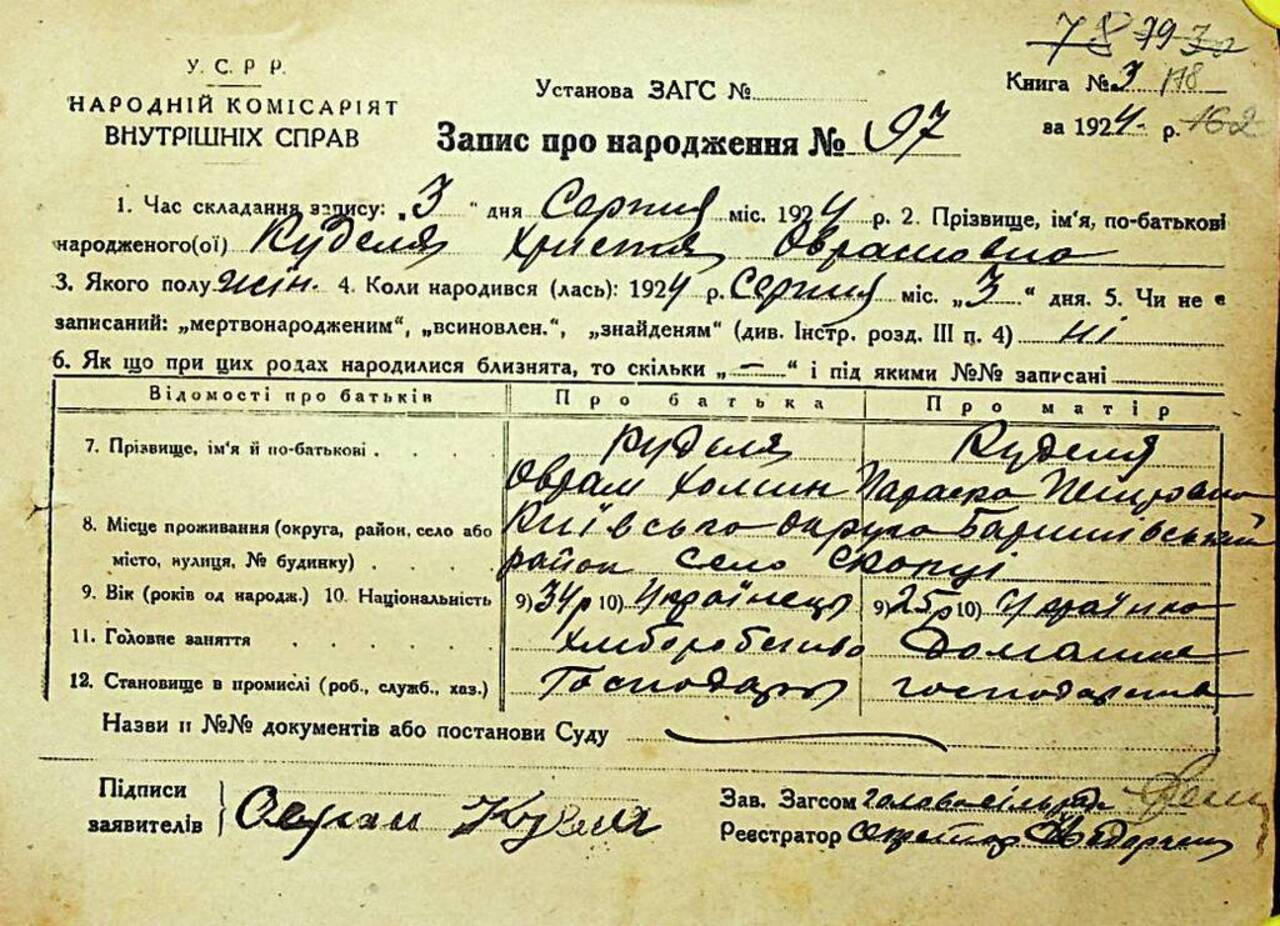 78 79 30
У. С. Р Р.
НАРОДНІЙ КОМІСАРІЯТ
ВНУТРІШНІХ СПРАВ
Установа ЗАГС №
Книга № 3 178
за 1924 р. 162
Запис про народження № 97
1. Час складання запису: „3“ дня Серпня міс. 1924 р. 2. Прізвище, ім'я, по-батькові
народженого(ої) Куделя Христя Оврамовна
3. Якого полу жін. 4. Коли народився (лась): 1924 р. Серпня міс. „3“ дня. 5. Чи не є
записаний: „мертвонародженим“, „всиновлен.“, „знайденям“ (див. Інстр. розд. III п. 4) ні
6. Як що при цих родах народилися близнята, то скільки „—“ і під якими №№ записані
Відомості про батьків Про батька Про матір
7. Прізвище, ім'я й по-батькові Куделя Куделя
Оврам Хомин Параска Петровна
8. Місце проживання (округа, район, село або Київсько округа Баришівський
місто, вулиця, № будинку) район село Скопці
9. Вік (років од народж.) 10. Національність 9) 34 р 10) Українець 9) 25 р 10) Українка
11. Головне заняття Хліборобство Домашнє
12. Становище в промислі (роб., служб., хаз.) Господарь господарство
Назви и №№ документів або постанови Суду
Підписи
заявителів Оврам Куделя
Зав. Загсом голова сільради
Реєстратор секретар